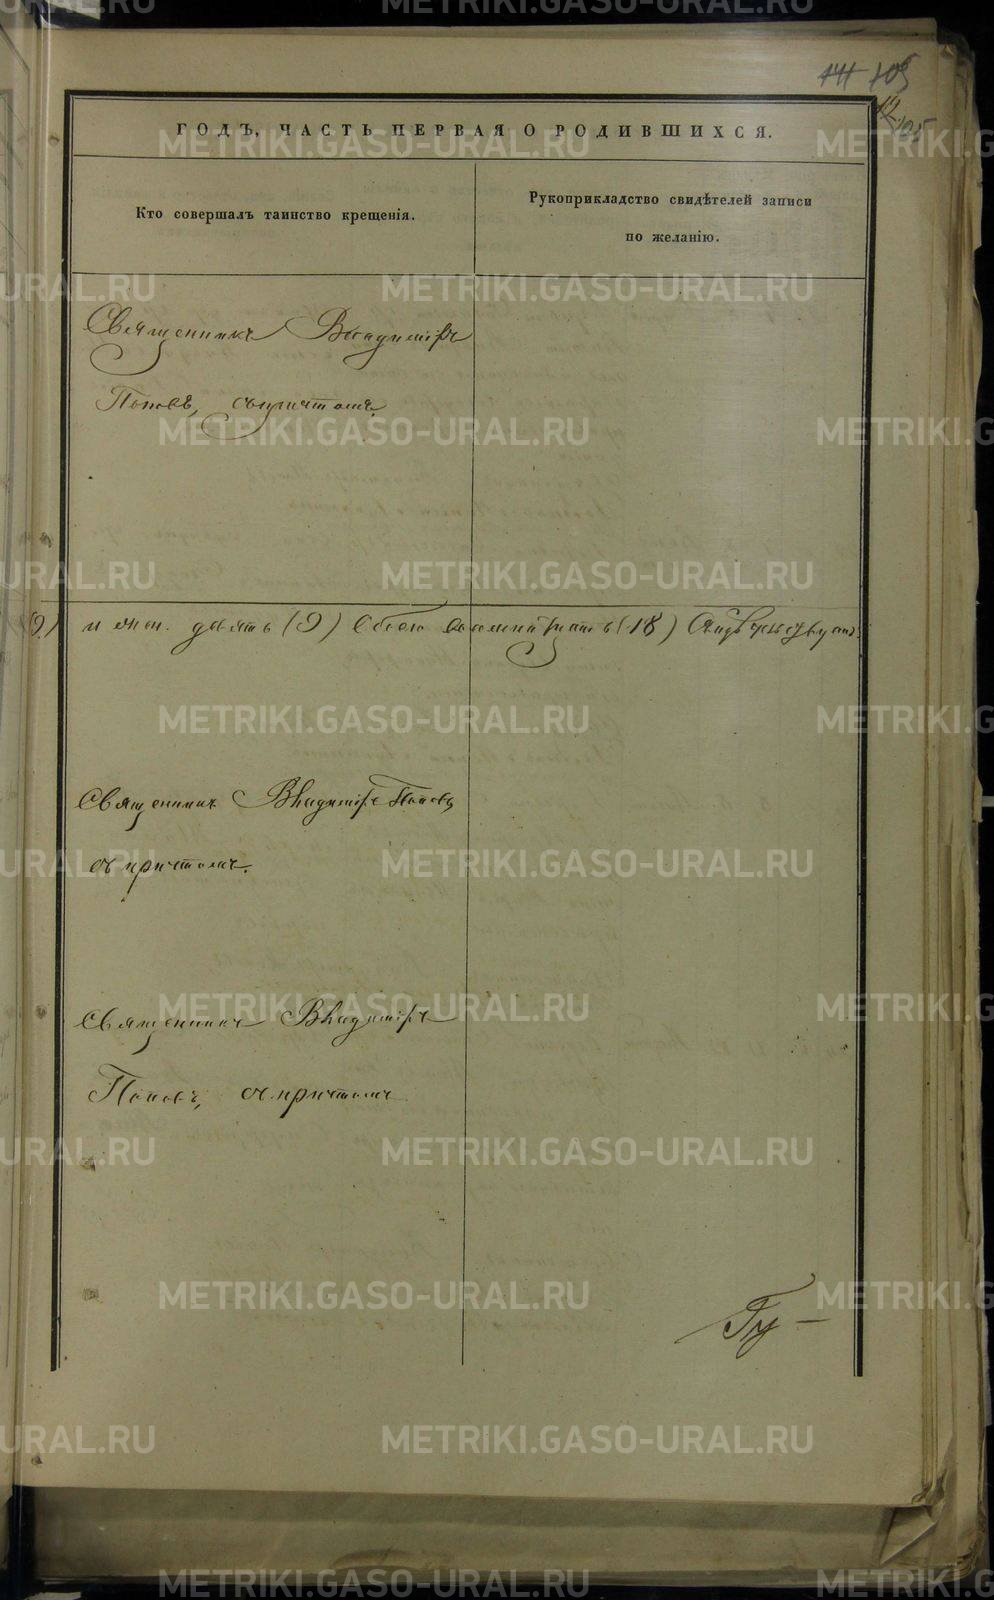 141 105
12
105
ГОДЪ, ЧАСТЬ ПЕРВАЯ О РОДИВШИХСЯ.
Кто совершалъ таинство крещенія.
Рукоприкладство свидѣтелей записи
по желанію.
Священникъ Владиміръ
Поповъ, съ причтомъ.
(9) и жен. девять (9) Обоего восемнадцать (18)
Священникъ Владиміръ Поповъ
съ причтомъ.
Священникъ Владиміръ
Поповъ, съ причтомъ
METRIKI.GASO-URAL.RU